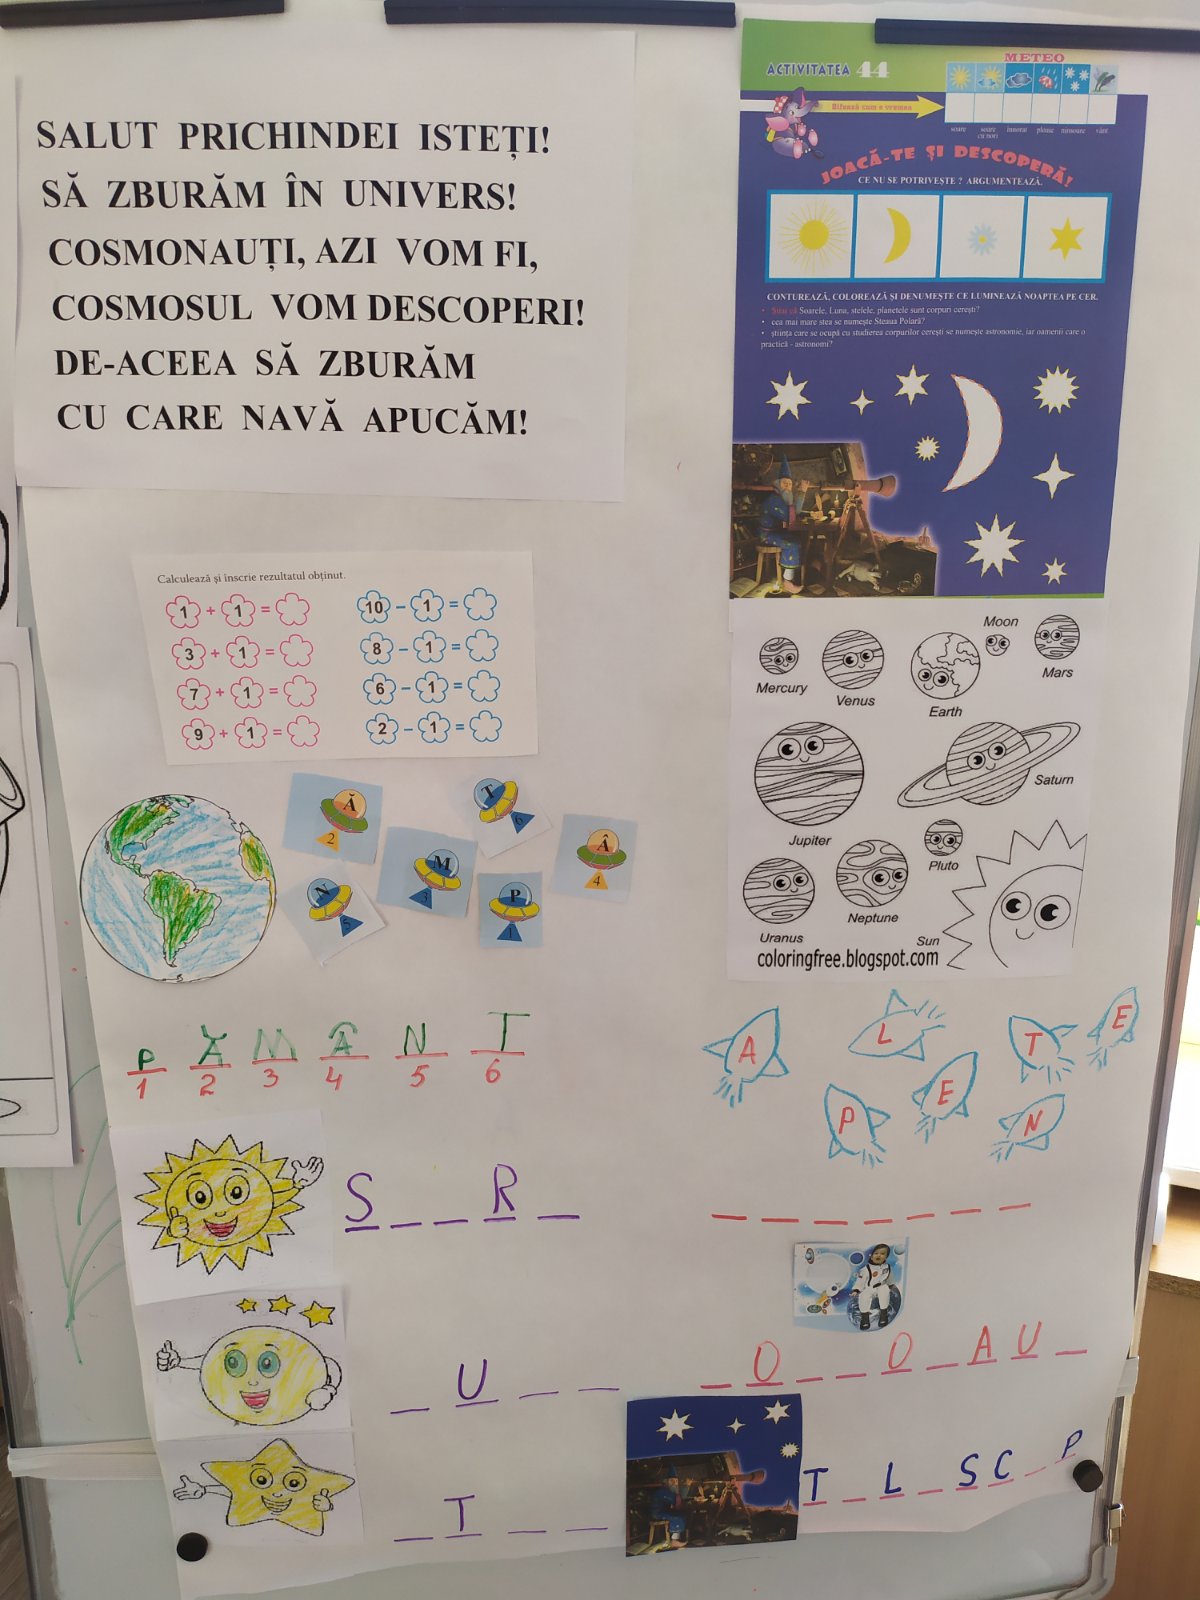 SALUT PRICHINDEI ISTEȚI!
SĂ ZBURĂM ÎN UNIVERS!
COSMONAUȚI, AZI VOM FI,
COSMOSUL VOM DESCOPERI!
DE-ACEEA SĂ ZBURĂM
CU CARE NAVĂ APUCĂM!
ACTIVITATEA 44
METEO
Bifează cum e vremea
soare
soare cu nori
înnorat
ploaie
ninsoare
vânt
JOACĂ-TE ȘI DESCOPERĂ!
CE NU SE POTRIVEȘTE? ARGUMENTEAZĂ.
CONTUREAZĂ, COLOREAZĂ ȘI DENUMEȘTE CE LUMINEAZĂ NOAPTEA PE CER.
• Știai că Soarele, Luna, stelele, planetele sunt corpuri cerești?
• cea mai mare stea se numește Steaua Polară?
• știința care se ocupă cu studierea corpurilor cerești se numește astronomie, iar oamenii care o
practică - astronomi?
Calculează și înscrie rezultatul obținut.
1 + 1 =
10 – 1 =
3 + 1 =
8 – 1 =
7 + 1 =
6 – 1 =
9 + 1 =
2 – 1 =
Moon
Mercury
Venus
Earth
Mars
Jupiter
Saturn
Uranus
Neptune
Pluto
Sun
coloringfree.blogspot.com
Ă 2
T 6
M 3
Â 4
N 5
P 1
P Ă M Â N T
1 2 3 4 5 6
A L T E
P E N
S _ _ R _
_ _ _ _ _ _ _
_ U _ _
_ O _ _ O _ A U _
_ T _ _
T _ L _ SC _ P